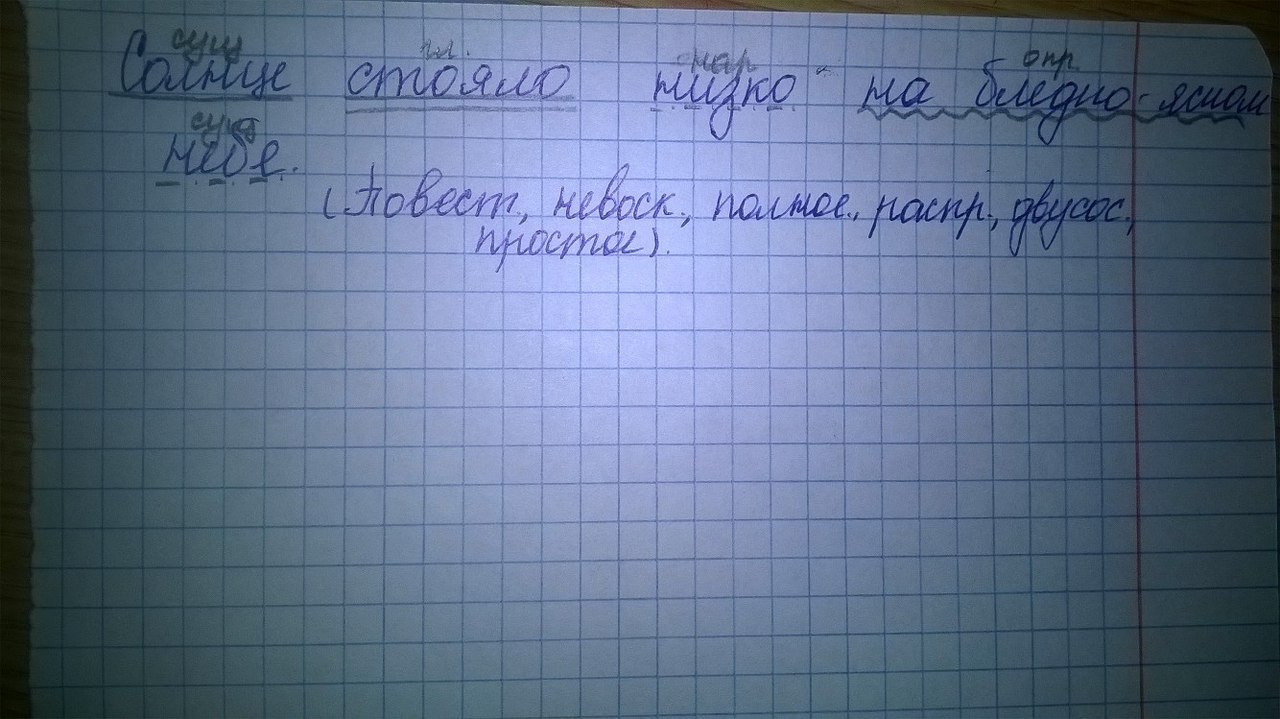 сущ гл. нар опр
Солнце стояло низко на бледно-ясном
сущ
небе.
(Повест, невоск., полное., распр., двусос.,
простое).